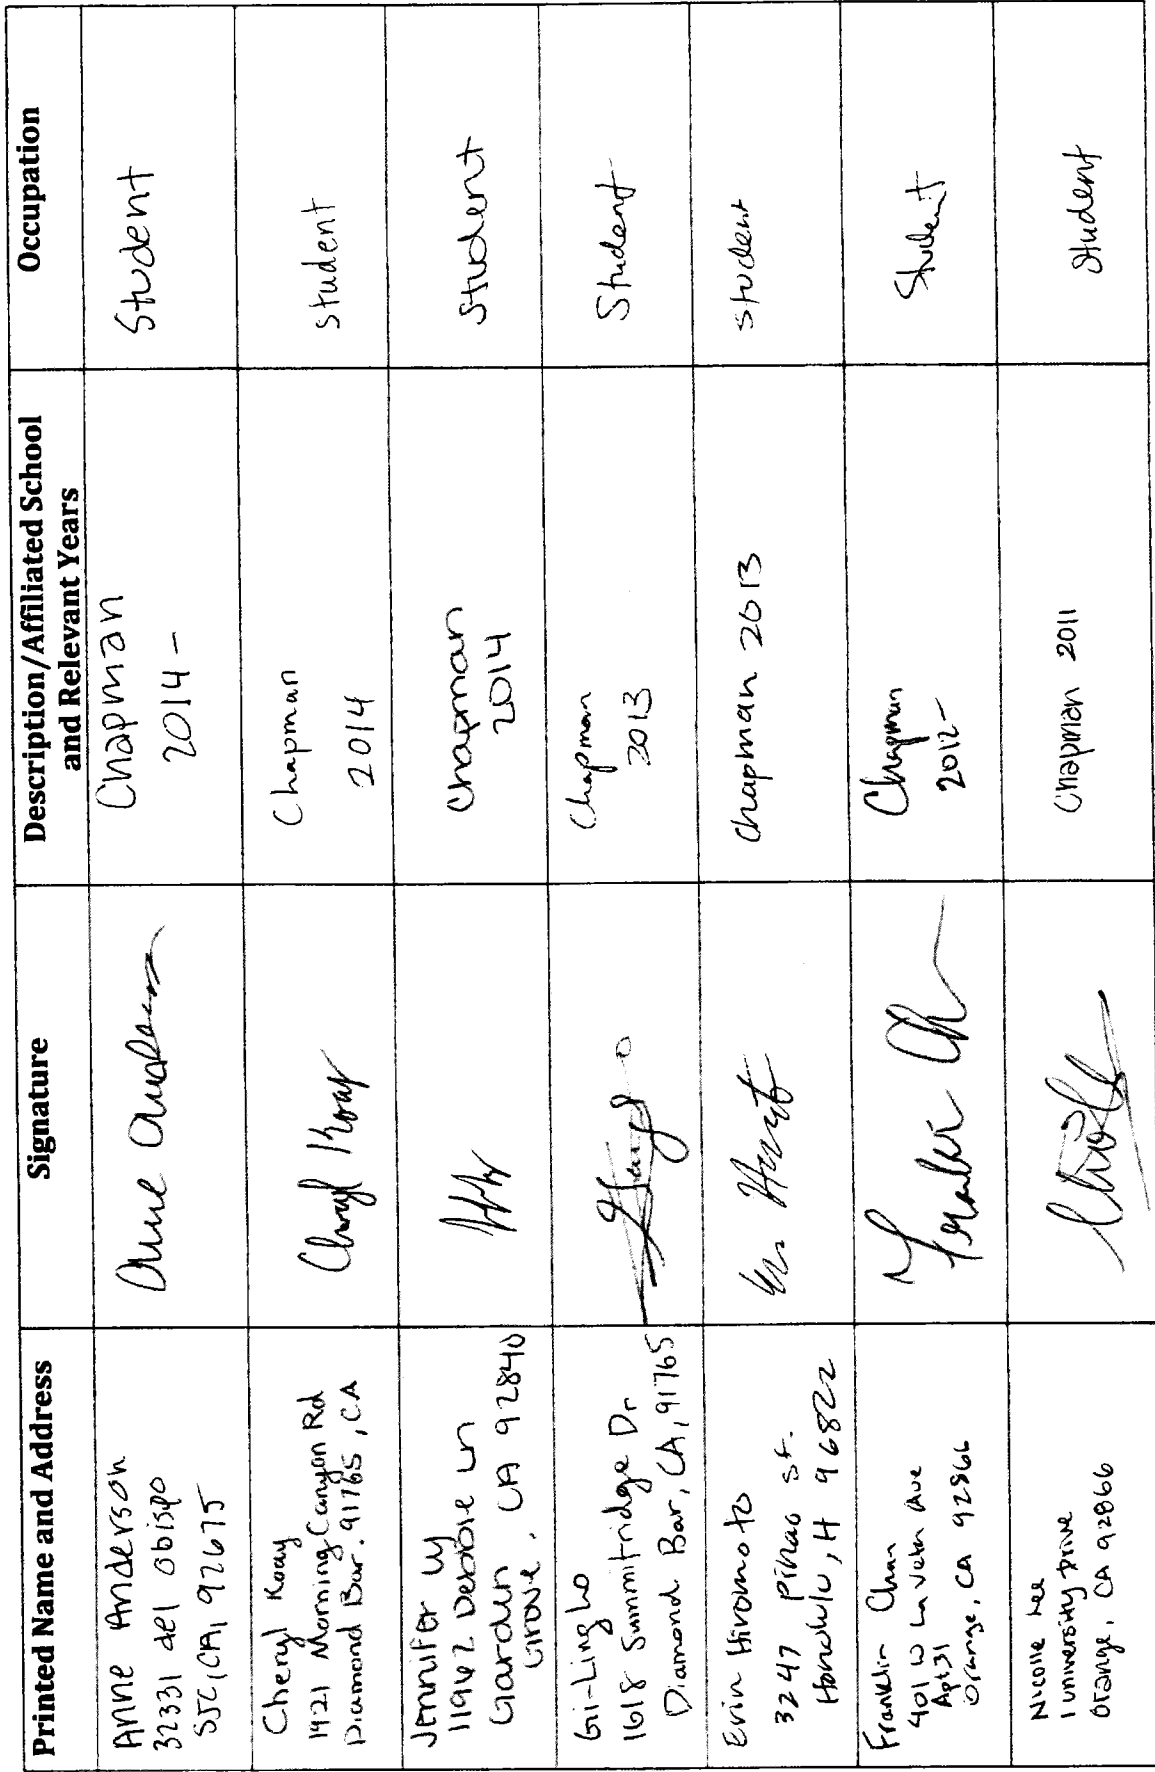 Printed Name and Address
Signature
Description/Affiliated School
and Relevant Years
Occupation
Anne Anderson
32331 del Obispo
SJC, CA, 92675
Anne Anderson
Chapman
2014 -
Student
Cheryl Koay
1421 Morning Canyon Rd
Diamond Bar. 91765, CA
Cheryl Koay
Chapman
2014
student
Jennifer Uy
11942 Debbie Ln
Garden CA 92840
Grove,
Chapman
2014
student
Gi-Ling Lo
1618 Summitridge Dr
Diamond Bar, CA, 91765
Chapman
2013
Student
Erin Hiromoto
3247 Pinao St.
Honolulu, H 96822
Chapman 2013
student
Franklin Chan
401 W La Veta Ave
Apt 31
Orange, CA 92866
Chapman
2012-
Student
Nicole Lee
1 University Drive
Orange, CA 92866
Chapman 2011
student